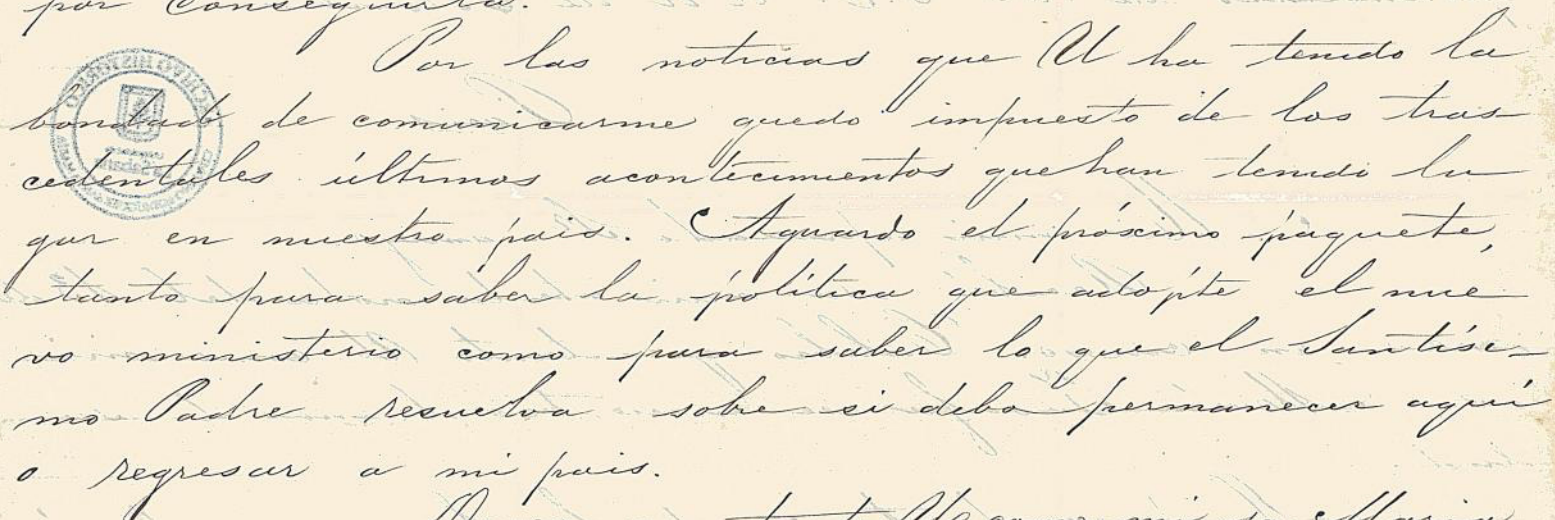 por conseguirla.
Por las noticias que U ha tenido la
bondad de comunicarme quedo impuesto de los tras-
cedentales últimos acontecimientos que han tenido lu
gar en nuestro pais. Aguardo el próximo paquete,
tanto para saber la política que adópte el nue
vo ministerio como para saber lo que el Santísi-
mo Padre resuelva sobre si debo permanecer aquí
o regresar a mi pais.
ARCHIVO HISTORICO